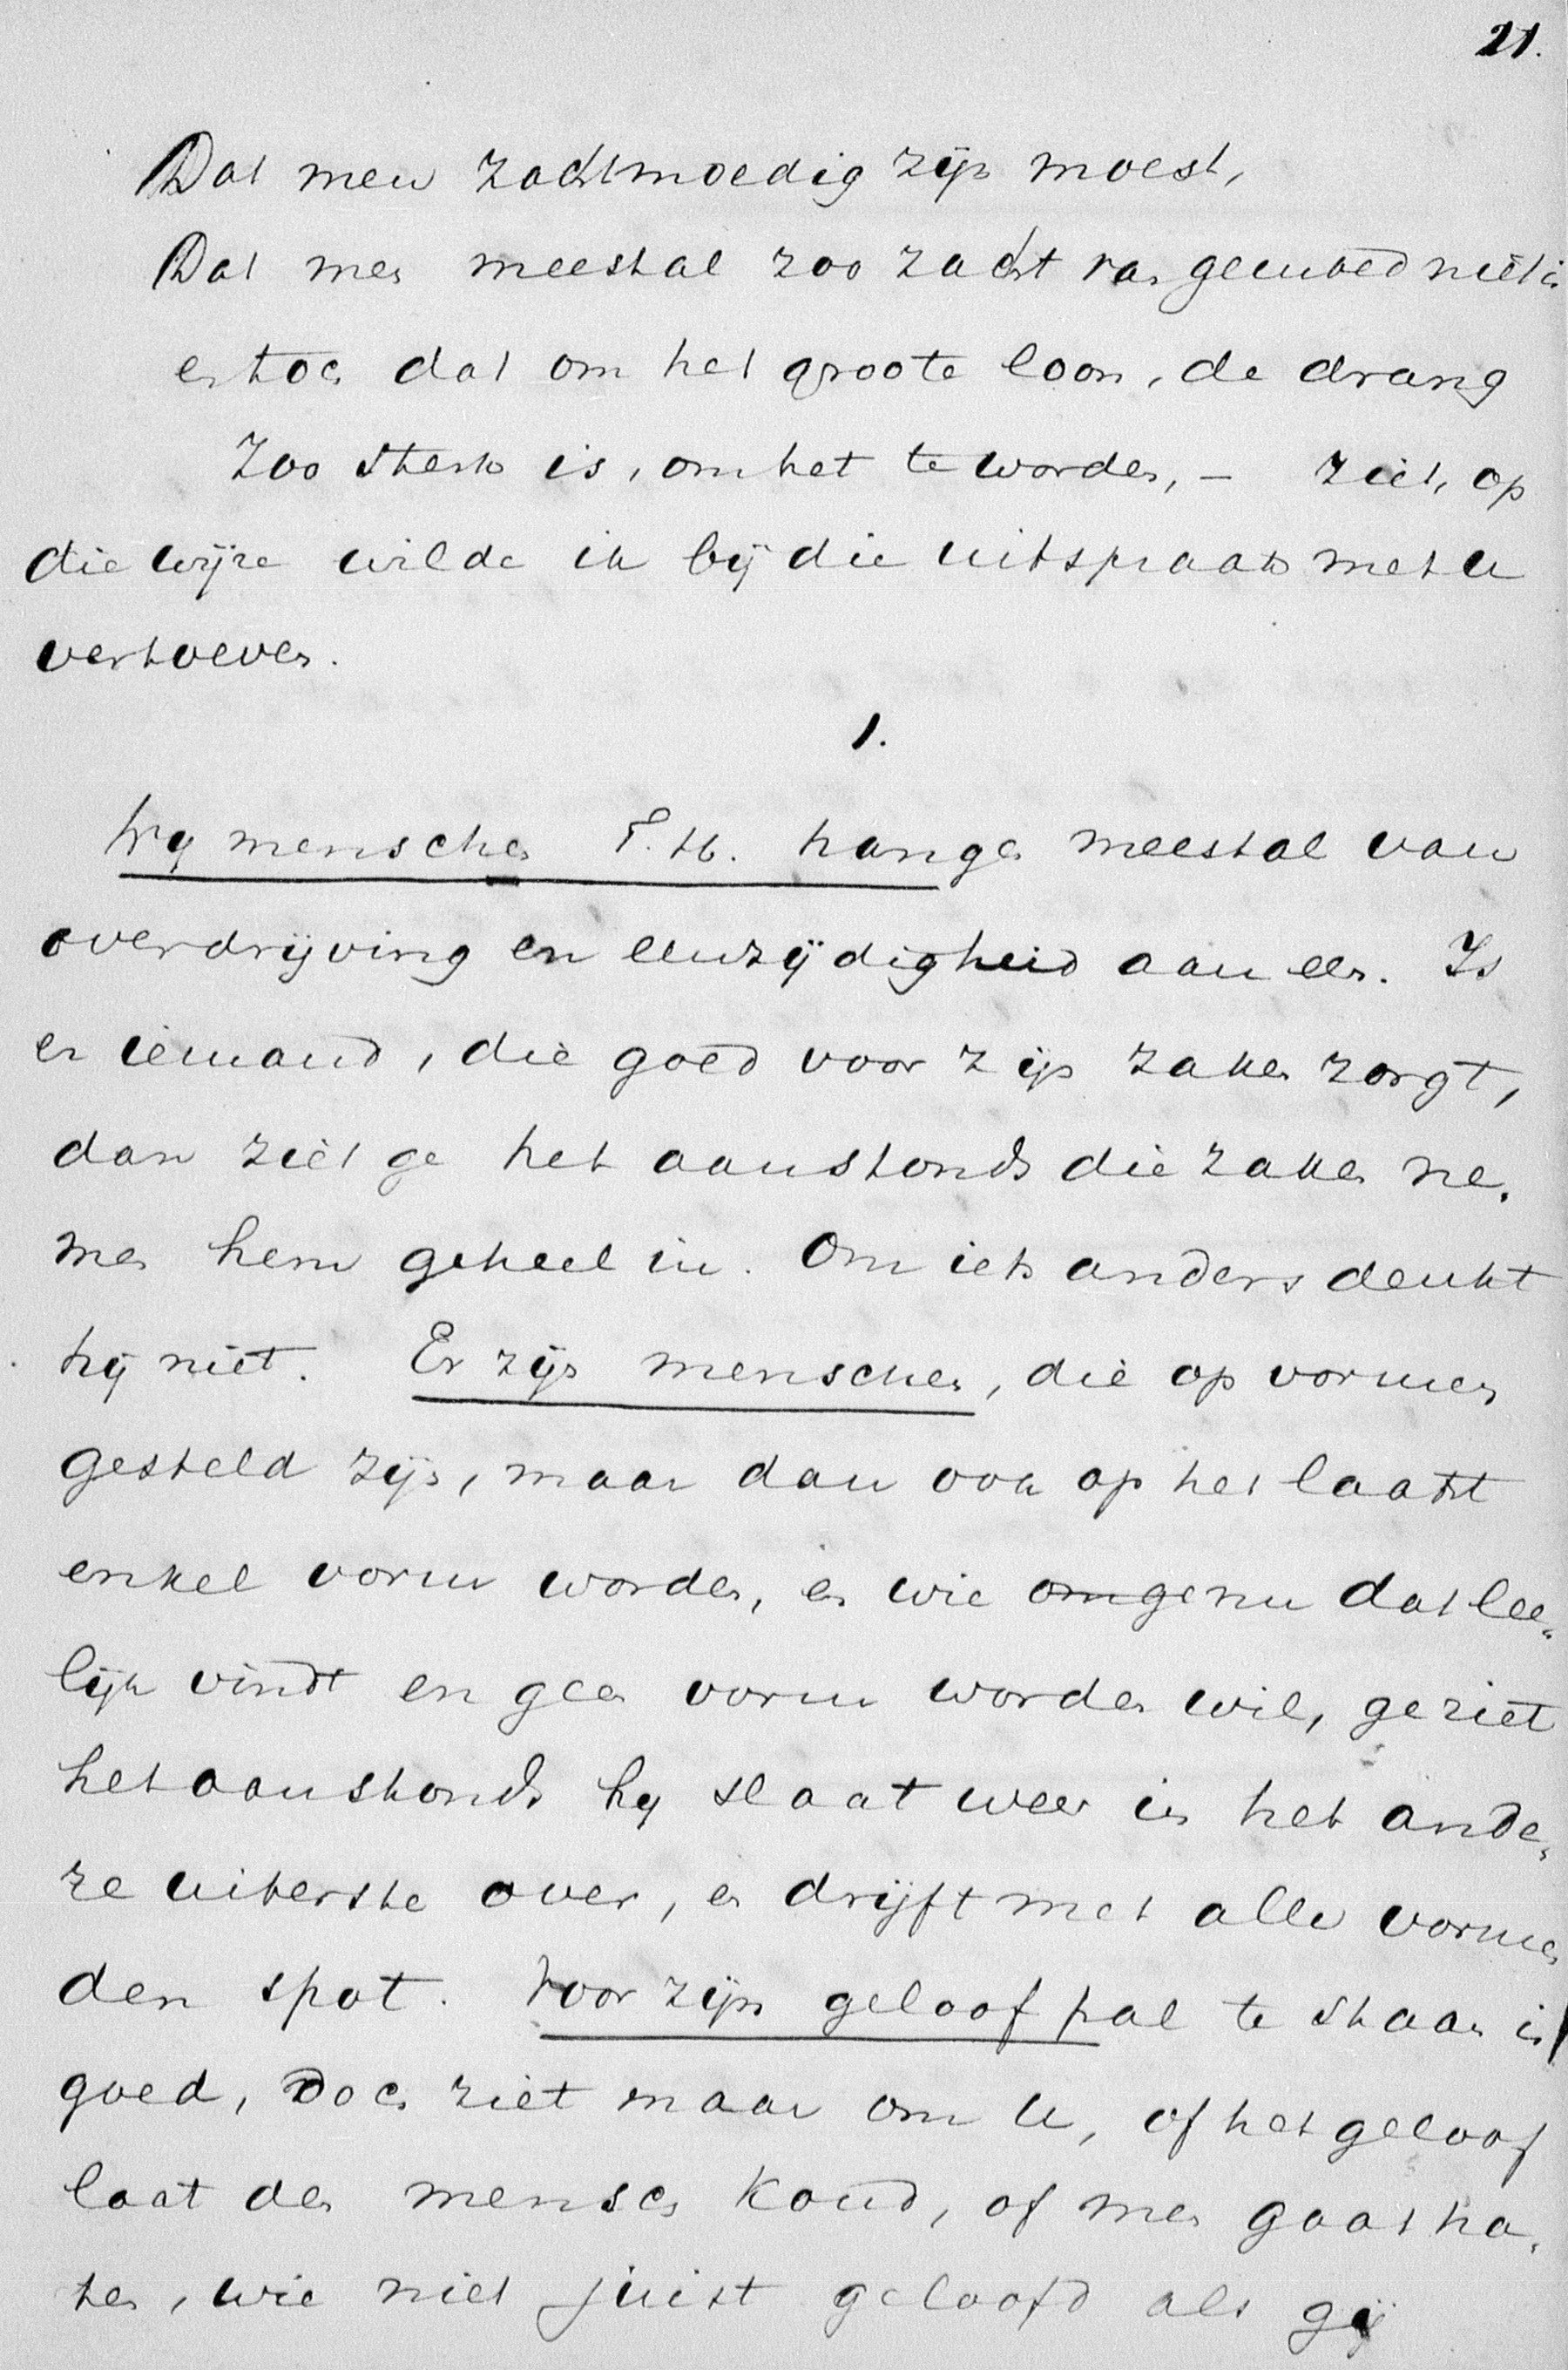 21.
Dat men zachtmoedig zijn moest,
Dat men meestal zoo zacht van gemoed niet is
en toch dat om het groote loon, de drang
zoo sterk is, om het te worden, – ziet, op
die wijze wilde ik bij die uitspraak met u
vertoeven.
1.
Wij menschen T. H. hangen meestal van
overdrijving en eenzijdigheid aan een. Is
er iemand, die goed voor zijn zaken zorgt,
dan ziet ge het aanstonds die zaken ne-
men hem geheel in. Om iets anders denkt
hij niet. Er zijn menschen, die op vormen
gesteld zijn, maar dan ook op het laatst
enkel vorm worden, en wie omgenu dat lee-
lijk vindt en geen vorm worden wil, ge ziet
het aanstonds hij slaat weer in het ande-
re uiterste over, en drijft met alle vormen
den spot. Voor zijn geloof pal te staan is
goed, Doch ziet maar om u, of het geloof
laat den mensch koud, of men gaat ha-
ten, wie niet juist geloofd als gij